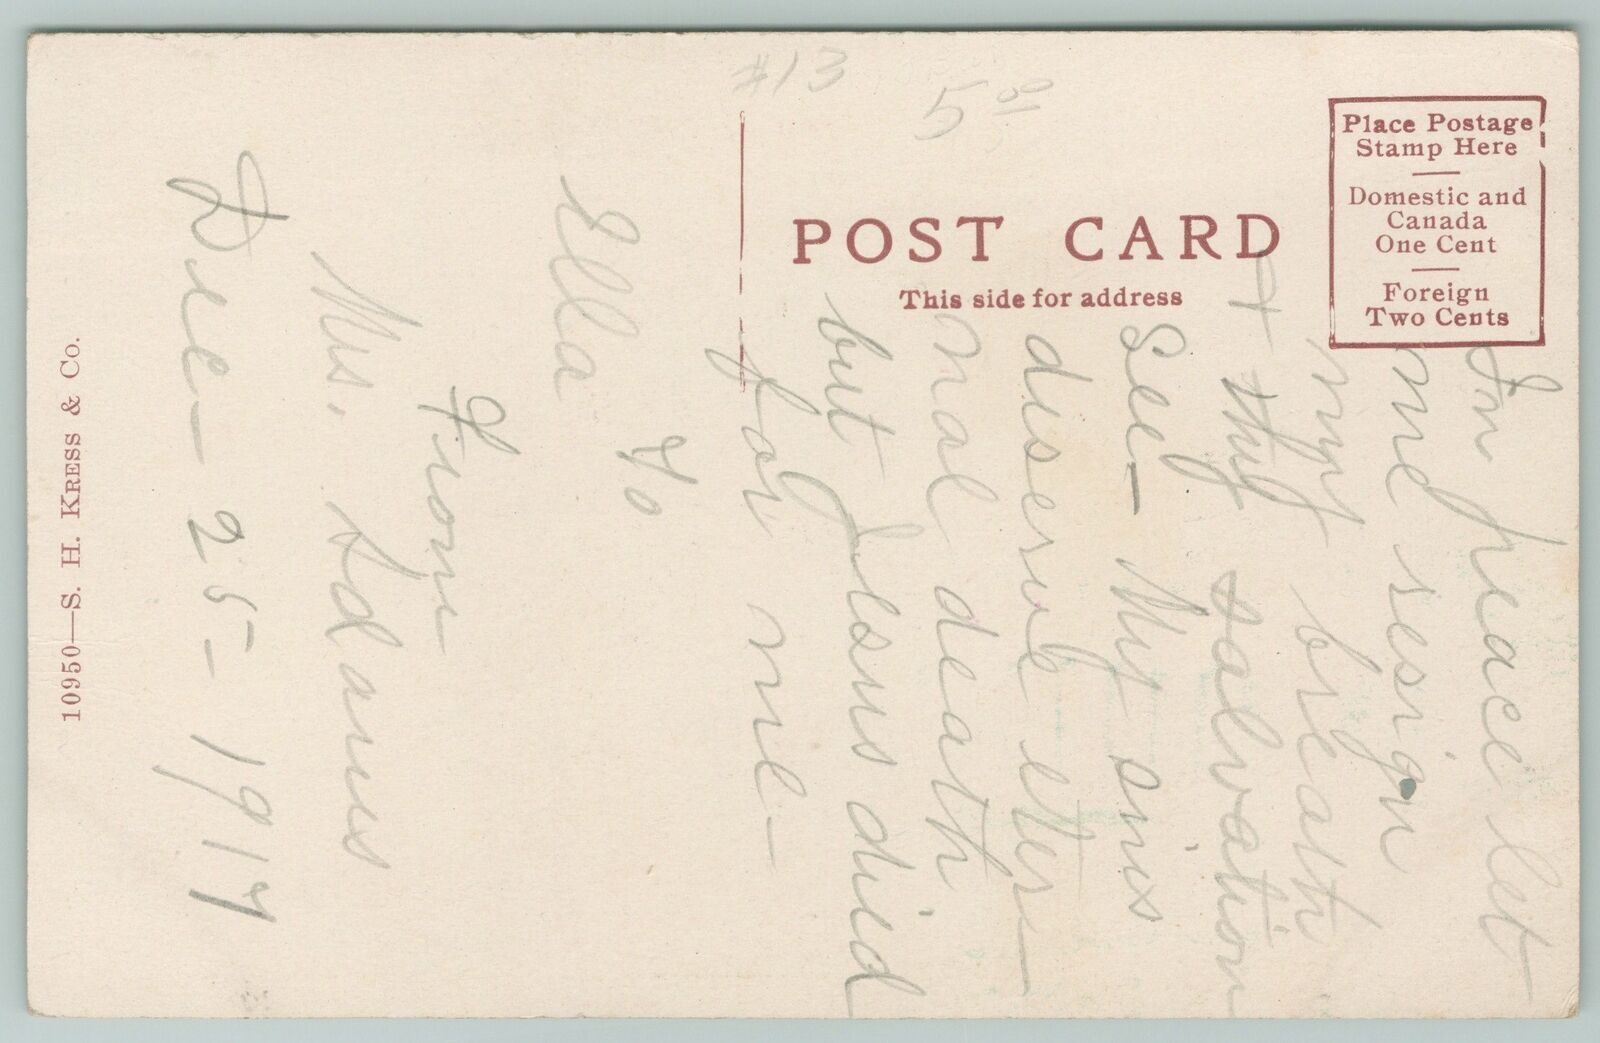 #13
5
POST CARD
This side for address
Place Postage
Stamp Here
Domestic and
Canada
One Cent
Foreign
Two Cents
In peace let
me resign
my breath
+ thy salvation
See- My sins
deserve eter-
nal death
but Jesus died
for me-
To
Ella
From
Mrs. Adams
Dec- 25- 1917
10950—S. H. KRESS & CO.